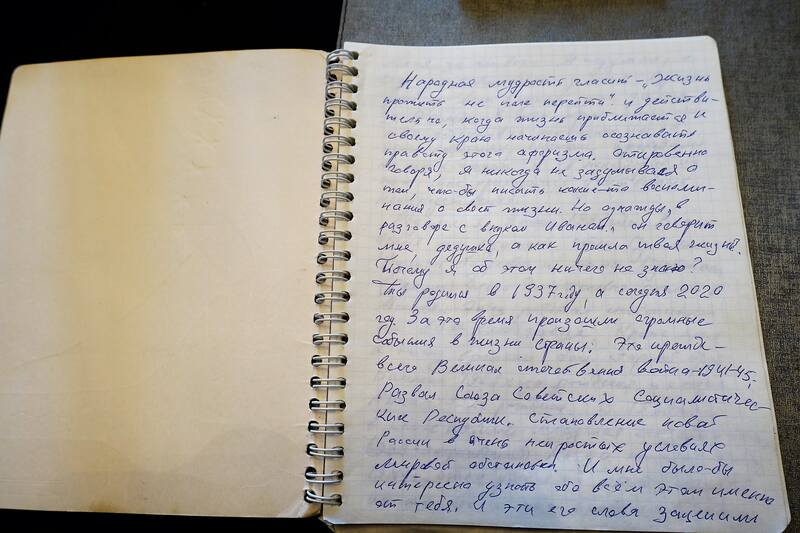 Народная мудрость гласит – „Жизнь
прожить не поле перейти“ и действи-
тельно, когда жизнь приближается к
своему краю начинаешь осознавать
правоту этого афоризма. Откровенно
говоря, я никогда не задумывался о
том, что-бы писать какие-то воспоми-
нания о своей жизни. Но однажды, в
разговоре с внуком Иваном, он говорит
мне, дедушка, а как прошла твоя жизнь?
Почему я об этом ничего не знаю?
Ты родился в 1937 году, а сегодня 2020
год. За это время произошли огромные
события в жизни страны. Это прежде-
всего Великая отечественная война-1941-45,
Развал Союза Советских Социалистичес-
ких Республик. Становление новой
России в очень непростых условиях
мировой обстановки. И мне было-бы
интересно узнать обо всём этом именно
от тебя. И эти его слова зацепили